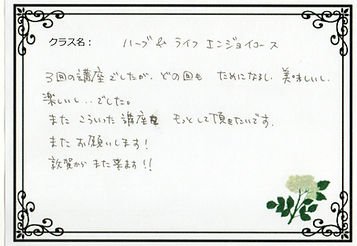 クラス名： ハーブ& ライフ エンジョイコース
3回の講座でしたが、どの回も ためになるし、美味しいし、
楽しいし…でした。
また こういった 講座を もっとして頂きたいです。
また お願いします！
敦賀から また来ます!!